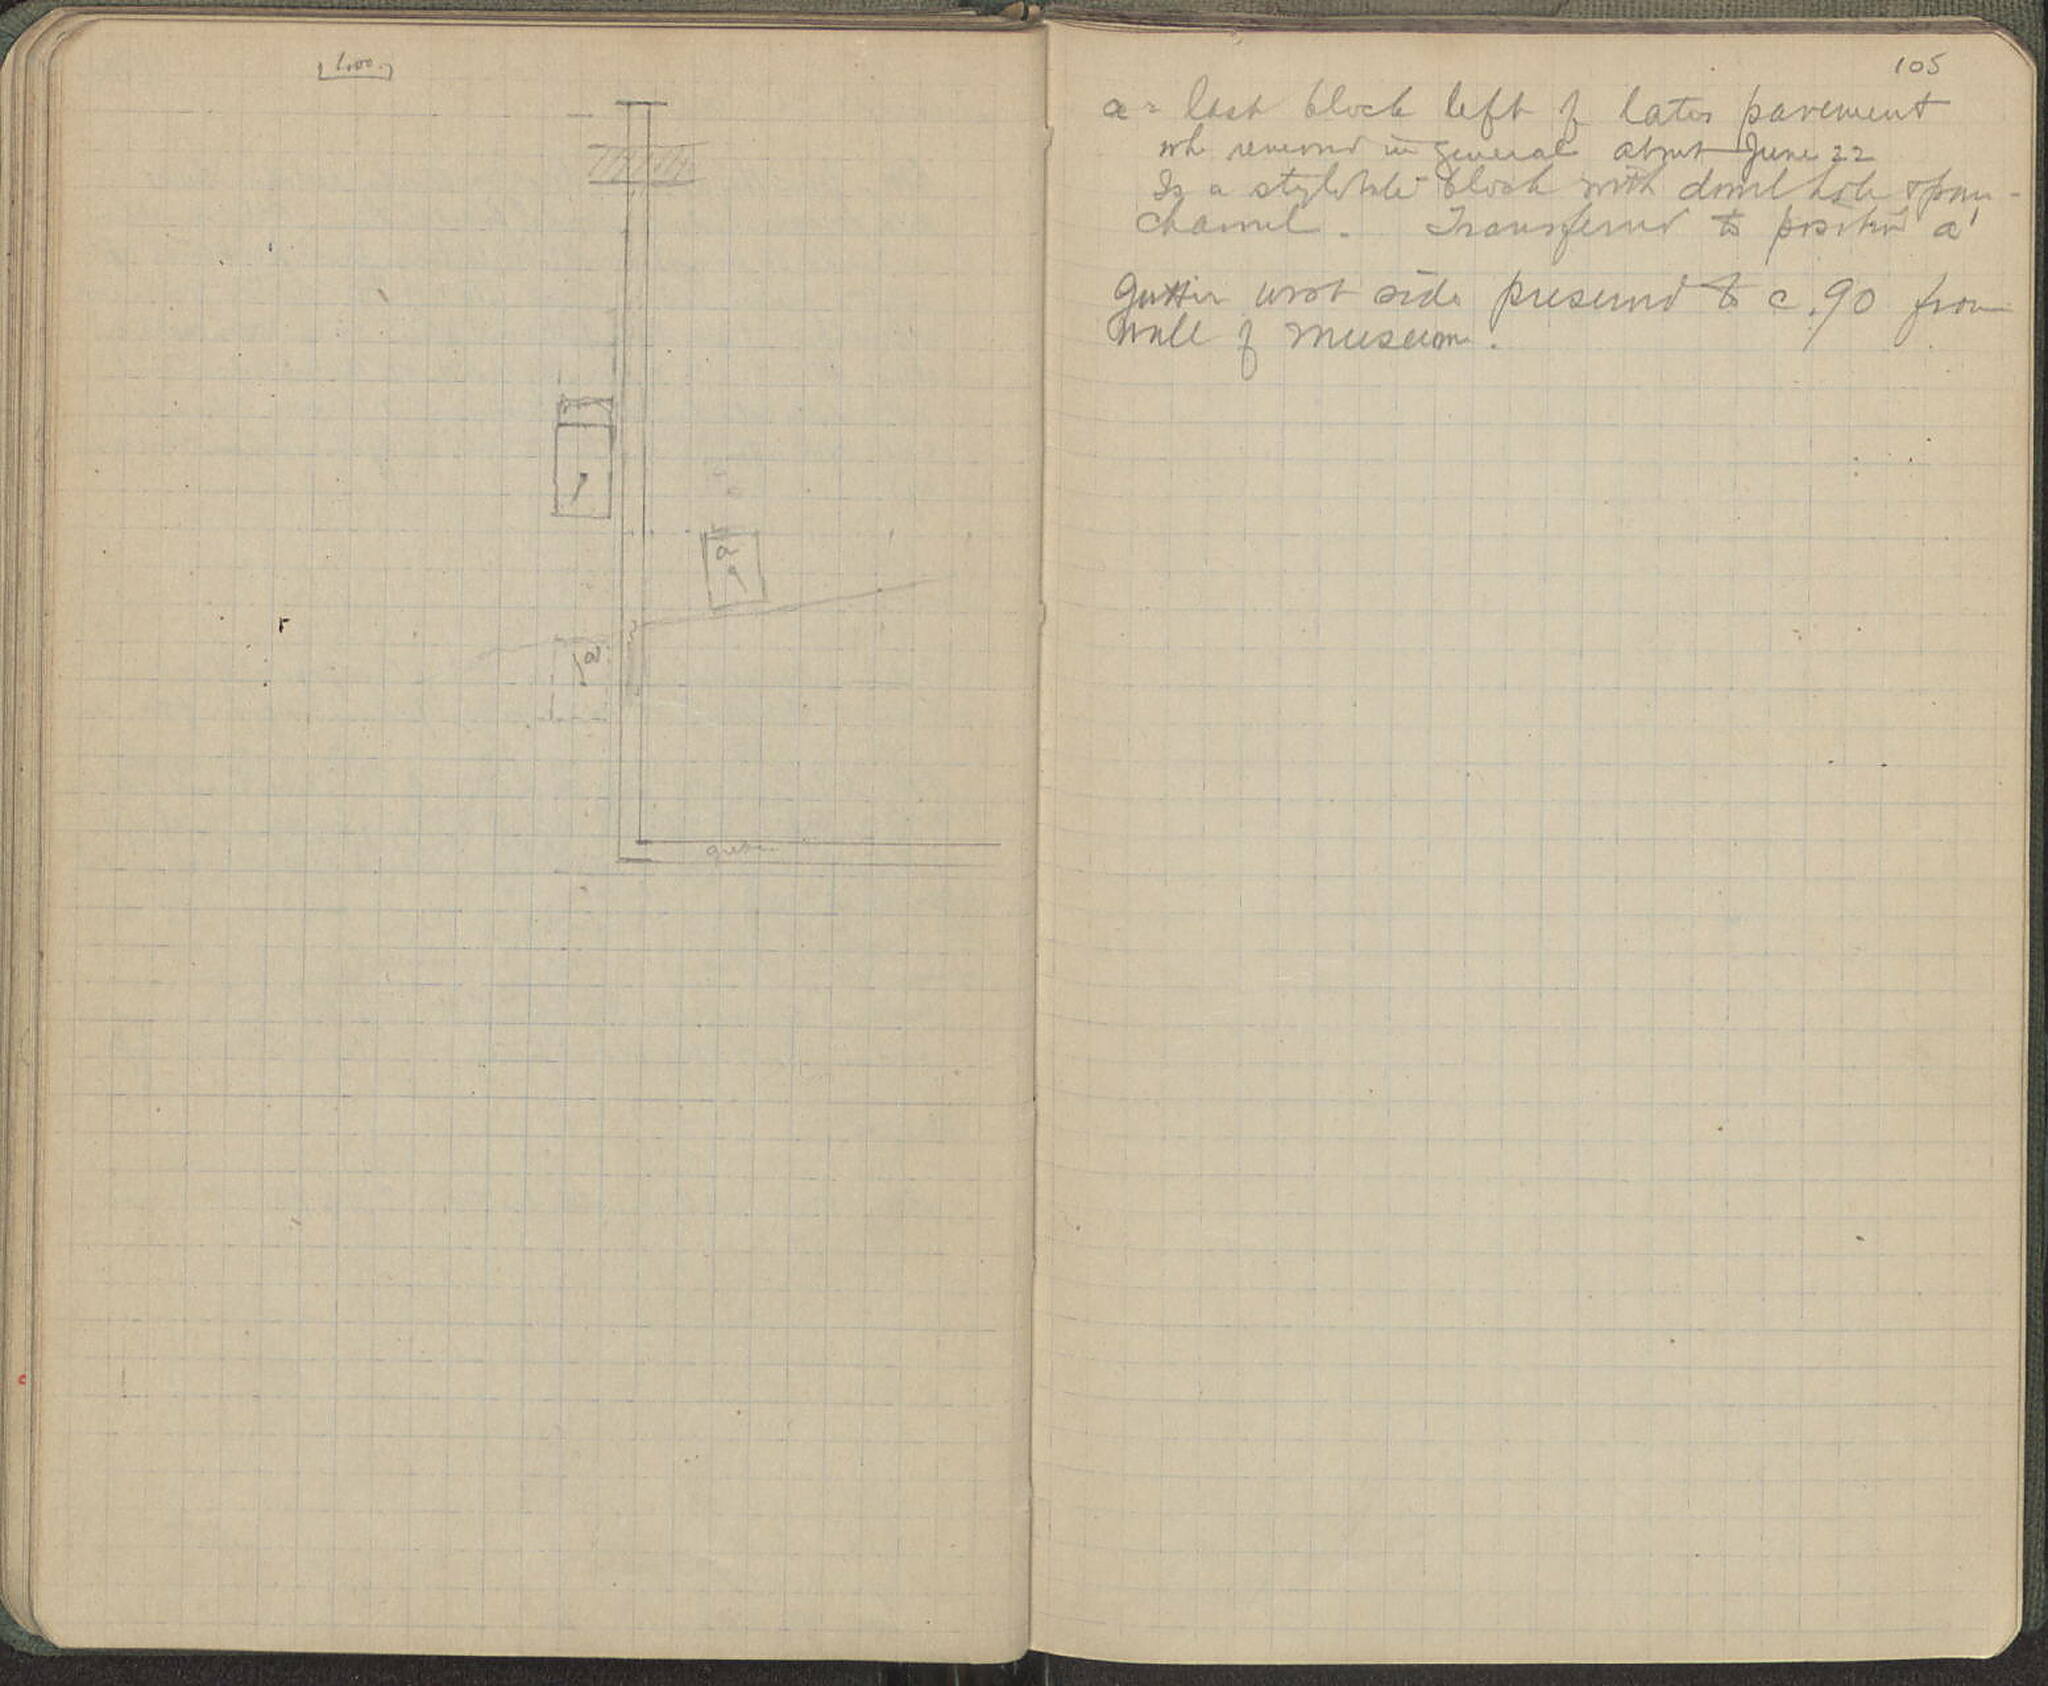 1.00
a
a'
gutter
105
a = last block left of later pavement
wh removed in general about June 22
Is a stylobate block with dowel hole & pour-
channel. Transferred to position a'
Gutter west side preserved to c. 90 from
wall of museum.